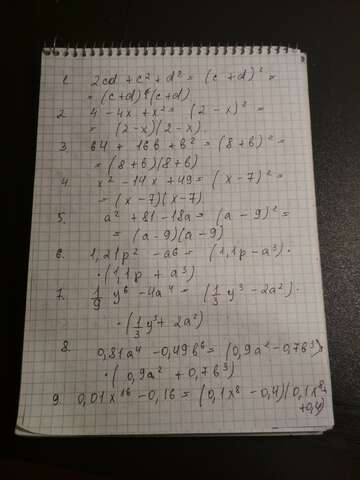 1. 2cd + c² + d² = (c + d)² =
= (c+d)(c+d)
2. 4 - 4x + x² = (2 - x)² =
= (2-x)(2-x).
3. 64 + 16b + b² = (8+b)² =
= (8+b)(8+b)
4. x² - 14x + 49 = (x - 7)² =
= (x-7)(x-7).
5. a² + 81 - 18a = (a - 9)² =
= (a-9)(a-9)
6. 1,21p² - a6 = (1,1p - a³)·
·(1,1p + a³)
7. 1/9 y⁶ - 4a⁴ = (1/3 y³ - 2a²)·
·(1/3 y³ + 2a²)
8. 0,81a⁴ - 0,49b⁶ = (0,9a² - 0,7b³)·
·(0,9a² + 0,7b³)
9. 0,01x¹⁶ - 0,16 = (0,1x⁸ - 0,4)(0,1x⁸+
+0,4)